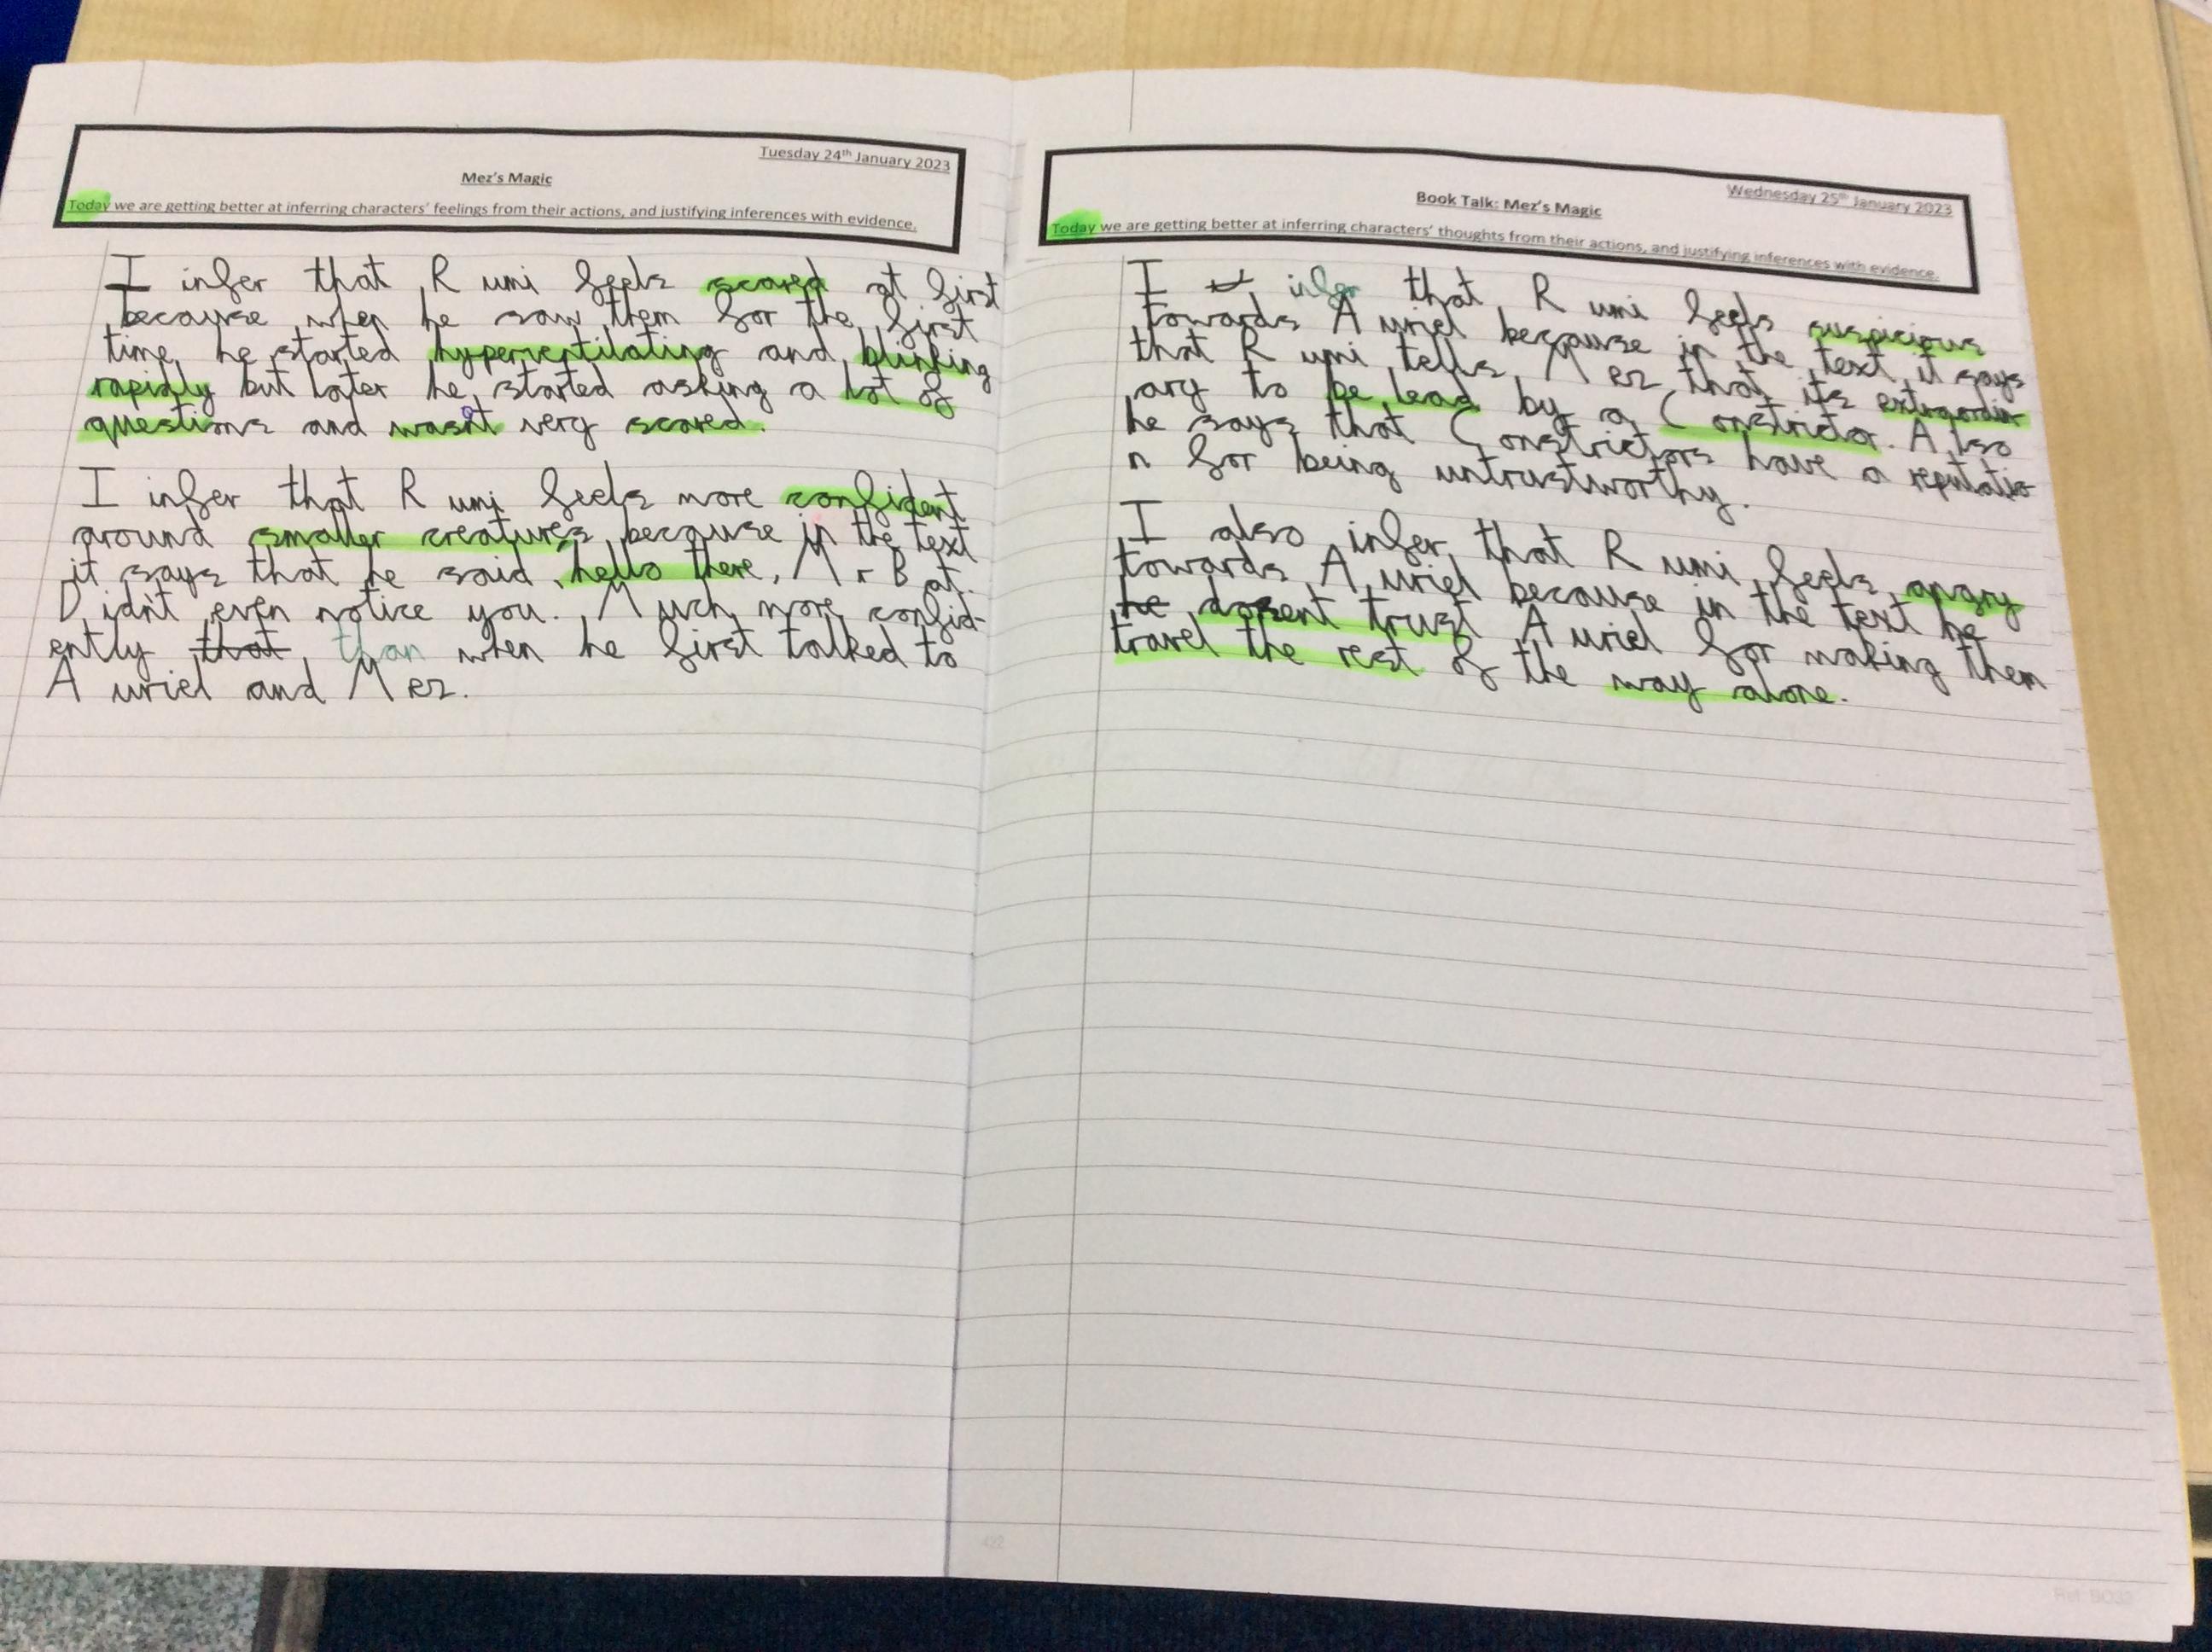 Tuesday 24th January 2023
Mez's Magic
Today we are getting better at inferring characters' feelings from their actions, and justifying inferences with evidence.
I infer that Rumi feels scared at first
because when he saw them for the first
time he started hyperventilating and blinking
rapidly but later he started asking a lot of
questions and wasn't very scared.
I infer that Rumi feels more confident
around smaller creatures because in the text
it says that he said, hello there, Mr Bat.
Didn't even notice you. Much more confid-
ently that than when he first talked to
Auriel and Mez.
Wednesday 25th January 2023
Book Talk: Mez's Magic
Today we are getting better at inferring characters' thoughts from their actions, and justifying inferences with evidence.
I infer that Rumi feels suspicious
towards Auriel because in the text it says
that Rumi tells Mez that its extraordin
ary to be lead by a Constrictor. Also
he says that Constrictors have a reputatio
n for being untrustworthy.
I also infer that Rumi feels angry
towards Auriel because in the text he
he dosent trust Auriel for making them
travel the rest of the way alone.
422
Ref: BO33